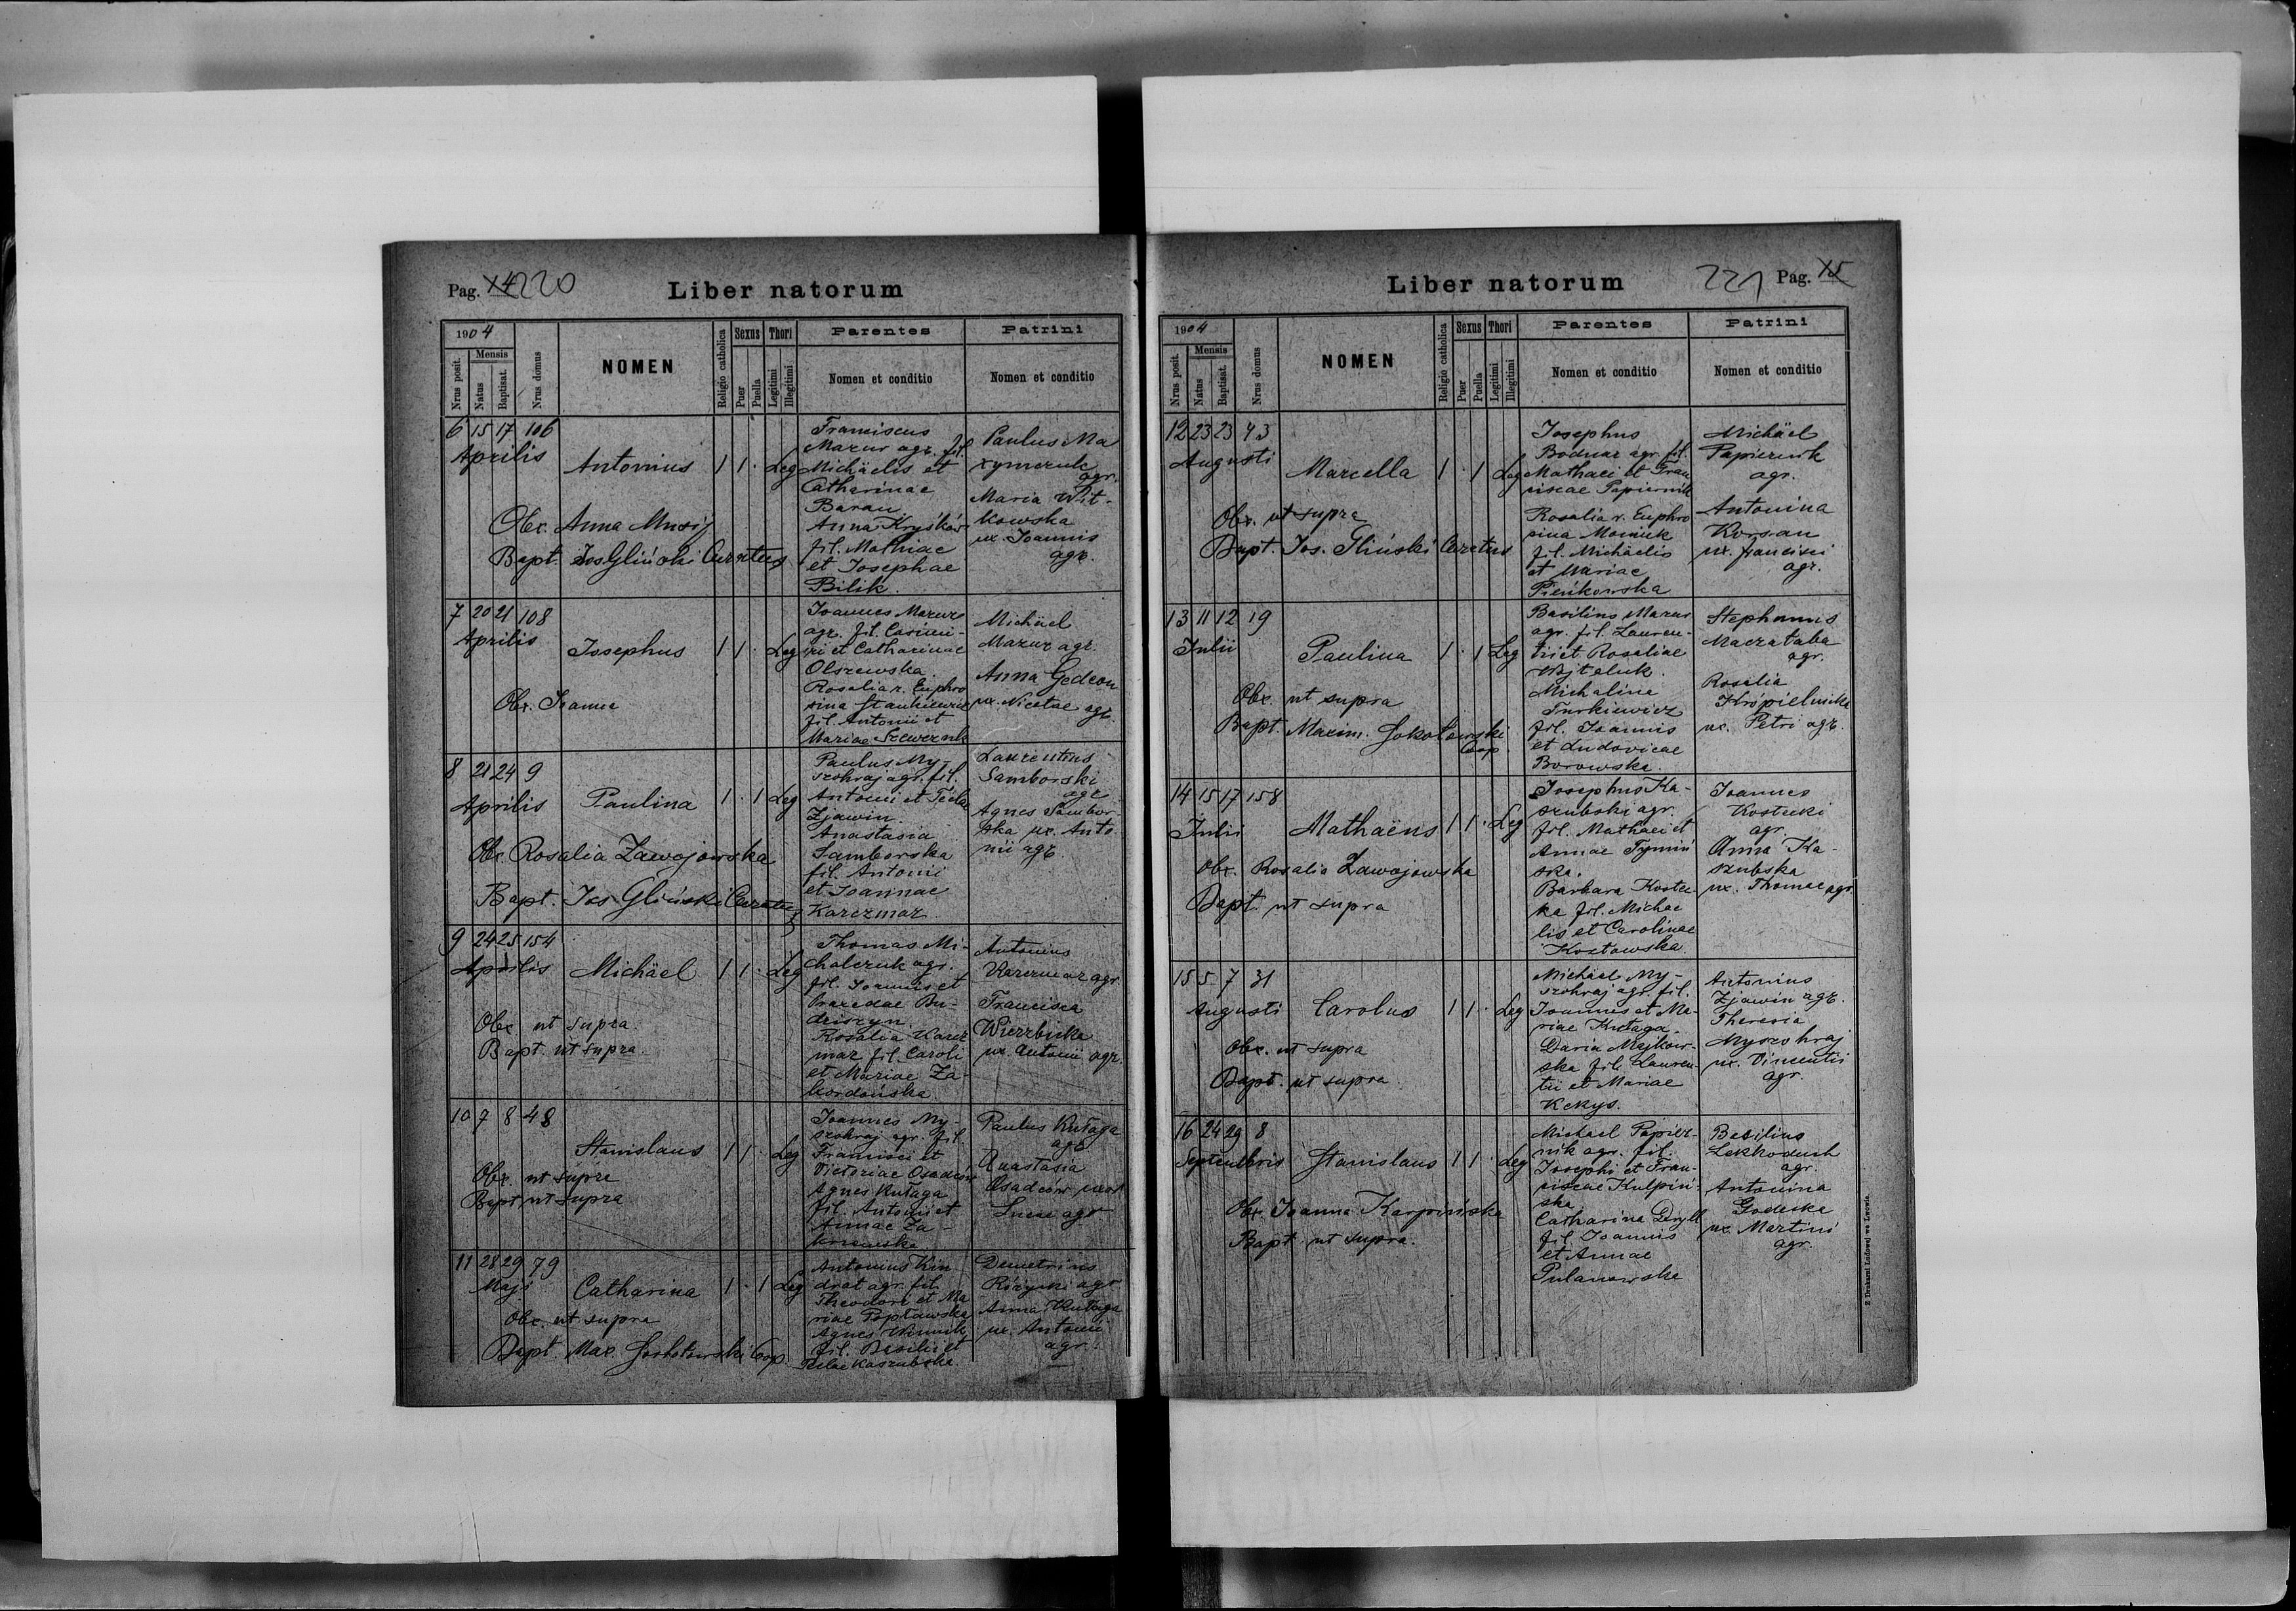 Pag. X4 220
Liber natorum
1904
Nrus posit.
Mensis
Natus
Baptisat.
Nrus domus
NOMEN
Religio catholica
Sexus
Puer
Puella
Thori
Legitimi
Illegitimi
Parentes
Nomen et conditio
Patrini
Nomen et conditio
6 15 17 106
Aprilis
Antonius 1 1 · Leg
Obx. Anna Musij
Bapt. Jos Gliński Curatus
Franciscus
Mazur agr. fil.
Michäelis et
Catharinae
Baran
Anna Kryśków
fil. Mathiae
et Josephae
Bilik.
Paulus Ma
xymczuk
agr.
Maria Wit-
kowska
ux. Joannis
agr.
7 20 21 108
Aprilis
Josephus 1 1 · Leg
Obx. Joanna
Joannes Mazur
agr. fil. Casimi-
ri et Catharinae
Olszewska.
Rosalia r. Euphro
sina Stankiewicz
fil. Antonii et
Mariae Szewczuk
Michäel
Mazur agr.
Anna Gedeon
ux. Nicolae agr.
8 21 24 9
Aprilis
Paulina 1 · 1 Leg
Obx. Rosalia Zawojowska
Bapt. Jos Gliński Curatus
Paulus My-
szohraj agr. fil.
Antonii et Teclae
Zjawin.
Anastasia
Samborska
fil. Antonii
et Joannae
Karczmar
Laurentius
Samborski
agr
Agnes Sambor-
ska ux. Anto
nii agr.
9 24 25 154
Aprilis
Michäel 1 1 · Leg
Obx ut supra.
Bapt. ut supra.
Thomas Mi-
chalczuk agr.
fil. Joannis et
Praxedae Bu-
dziszyn
Rosalia Karcz
mar fil. Caroli
et Mariae Za-
kordońska
Antonius
Karczmar agr.
Francisca
Wierzbicka
ux. Antonii agr.
10 7 8 48
Stanislaus 1 1 · Leg
Obx. ut supra
Bapt. ut supra
Joannes My-
szohraj agr. fil.
Francisci et
Victoriae Osadców
Agnes Kułaga
fil. Antonii et
Annae Za-
Paulus Kułaga
agr
Anastasia
Osadców uxor
Lucae agr
11 28 29 79
Maji
Catharina 1 · 1 Leg
Obx. ut supra
Bapt. Max. Sokołowski Coop.
Antonius Kin
drat agr. fil.
Theodori et Ma
riae Popławska
Agnes Winnik
fil. Basilii et
Teclae Kaszubska
Demetrius
Różycki agr
Anna Kułaga
ux. Antonii
agr.
Liber natorum
221 Pag. X5
1904
Nrus posit.
Mensis
Natus
Baptisat.
Nrus domus
NOMEN
Religio catholica
Sexus
Puer
Puella
Thori
Legitimi
Illegitimi
Parentes
Nomen et conditio
Patrini
Nomen et conditio
12 23 23 43
Augusti
Marcella 1 · 1 Leg
Obx. ut supra
Bapt. Jos. Gliński Curatus
Josephus
Bodnar agr. fil.
Mathaei et Fran
ciscae Papiernik
Rosalia r. Euphro
sina
fil. Michäelis
et Mariae
Pieńkowska
Michäel
Papiernik
agr.
Antonina
Korsan
ux. Francisci
agr.
13 11 12 19
Julii
Paulina 1 · 1 Leg
Obx. ut supra
Bapt. Maxim. Sokołowski
Coop.
Basilius Mazur
agr. fil. Lauren-
tii et Rosaliae
Wojtaluk.
Michalina
Turkiewicz
fil. Joannis
et Ludovicae
Borowska.
Stephanus
Maczataba
agr.
Rosalia
Kropielnicka
ux. Petri agr.
14 15 17 158
Julii
Mathaëus 1 1 · Leg
Obx. Rosalia Zawojowska
Bapt. ut supra
Josephus Ka-
szubski agr.
fil. Mathaei et
Annae Tymiń
ska.
Barbara Kostec-
ka fil. Michae
lis et Carolinae
Kozłowska.
Joannes
Kostecki
agr.
Anna Ka-
szubska
ux. Thomae agr.
15 5 7 31
Augusti
Carolus 1 1 · Leg
Obx. ut supra
Bapt. ut supra
Michäel My-
szohraj agr. fil.
Joannis et Ma-
riae Kułaga.
Daria Majkow-
ska fil. Lauren-
tii et Mariae
Kekys.
Antonius
Zjawin agr.
Theresia
Myszohraj
ux. Vincentii
agr.
16 24 29 8
Septembris
Stanislaus 1 1 · Leg
Obx. Joanna Karpińska
Bapt. ut supra.
Michael Papier-
nik agr. fil.
Josephi et Fran-
ciscae Kulpiń-
ska
Catharina Deryłł
fil. Joannis
et Annae
Pulanowska
Basilius
agr.
Antonina
Godecka
ux. Martini
agr.
Z Drukarni Ludowej we Lwowie.